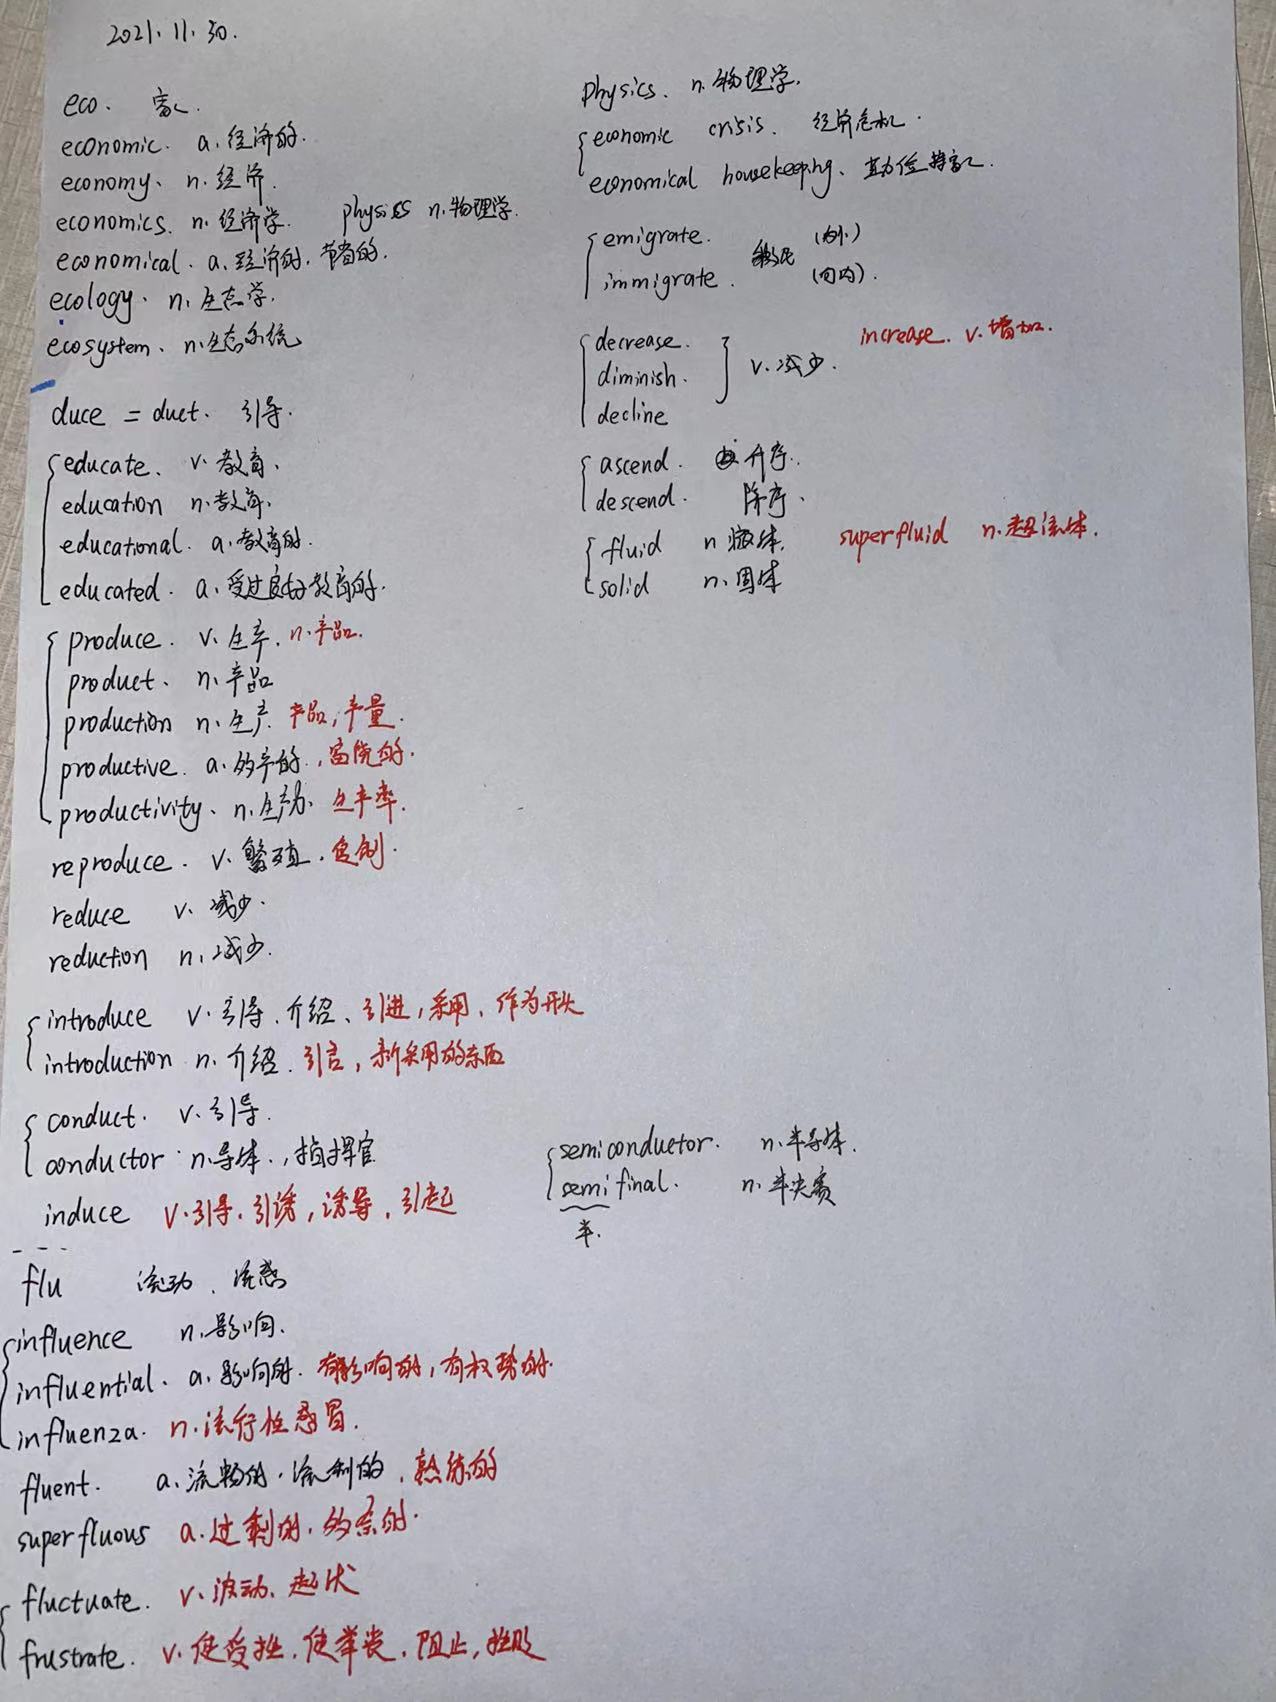 2021.11.30.
eco. 家.
economic. a.经济的.
economy. n.经济.
economics. n.经济学. physics n.物理学.
economical. a.经济的.节省的.
ecology. n.生态学.
ecosystem. n.生态系统
duce = duct. 引导.
educate. v.教育.
education n.教育.
educational. a.教育的.
educated. a.受过良好教育的.
produce. v.生产. n.产品.
product. n.产品
production n.生产. 产品,产量.
productive. a.多产的,富饶的.
productivity. n.生产力. 生产率.
reproduce. v.繁殖.复制.
reduce v.减少.
reduction n.减少.
introduce v.引导.介绍、引进,采用、作为开头
introduction n.介绍.引言,新采用的东西
conduct. v.引导.
conductor n.导体.,指挥官
induce v.引导.引诱,诱导.引起
flu 流动、流感
influence n.影响.
influential. a.影响的.有影响的,有权势的.
influenza. n.流行性感冒.
fluent. a.流畅的.流利的.熟练的
superfluous a.过剩的.多余的.
fluctuate. v.波动、起伏
frustrate. v.使受挫.使举丧.阻止,挫败
physics. n.物理学.
economic crisis. 经济危机.
economical housekeeping、勤俭持家.
emigrate. (向外)
immigrate. 移民 (向内).
decrease. increase. v.增加.
diminish. v.减少.
decline
ascend. 升序.
descend. 降序.
fluid n液体. superfluid n.超流体.
solid n.固体
semiconductor. n.半导体.
semifinal. n.半决赛
半.